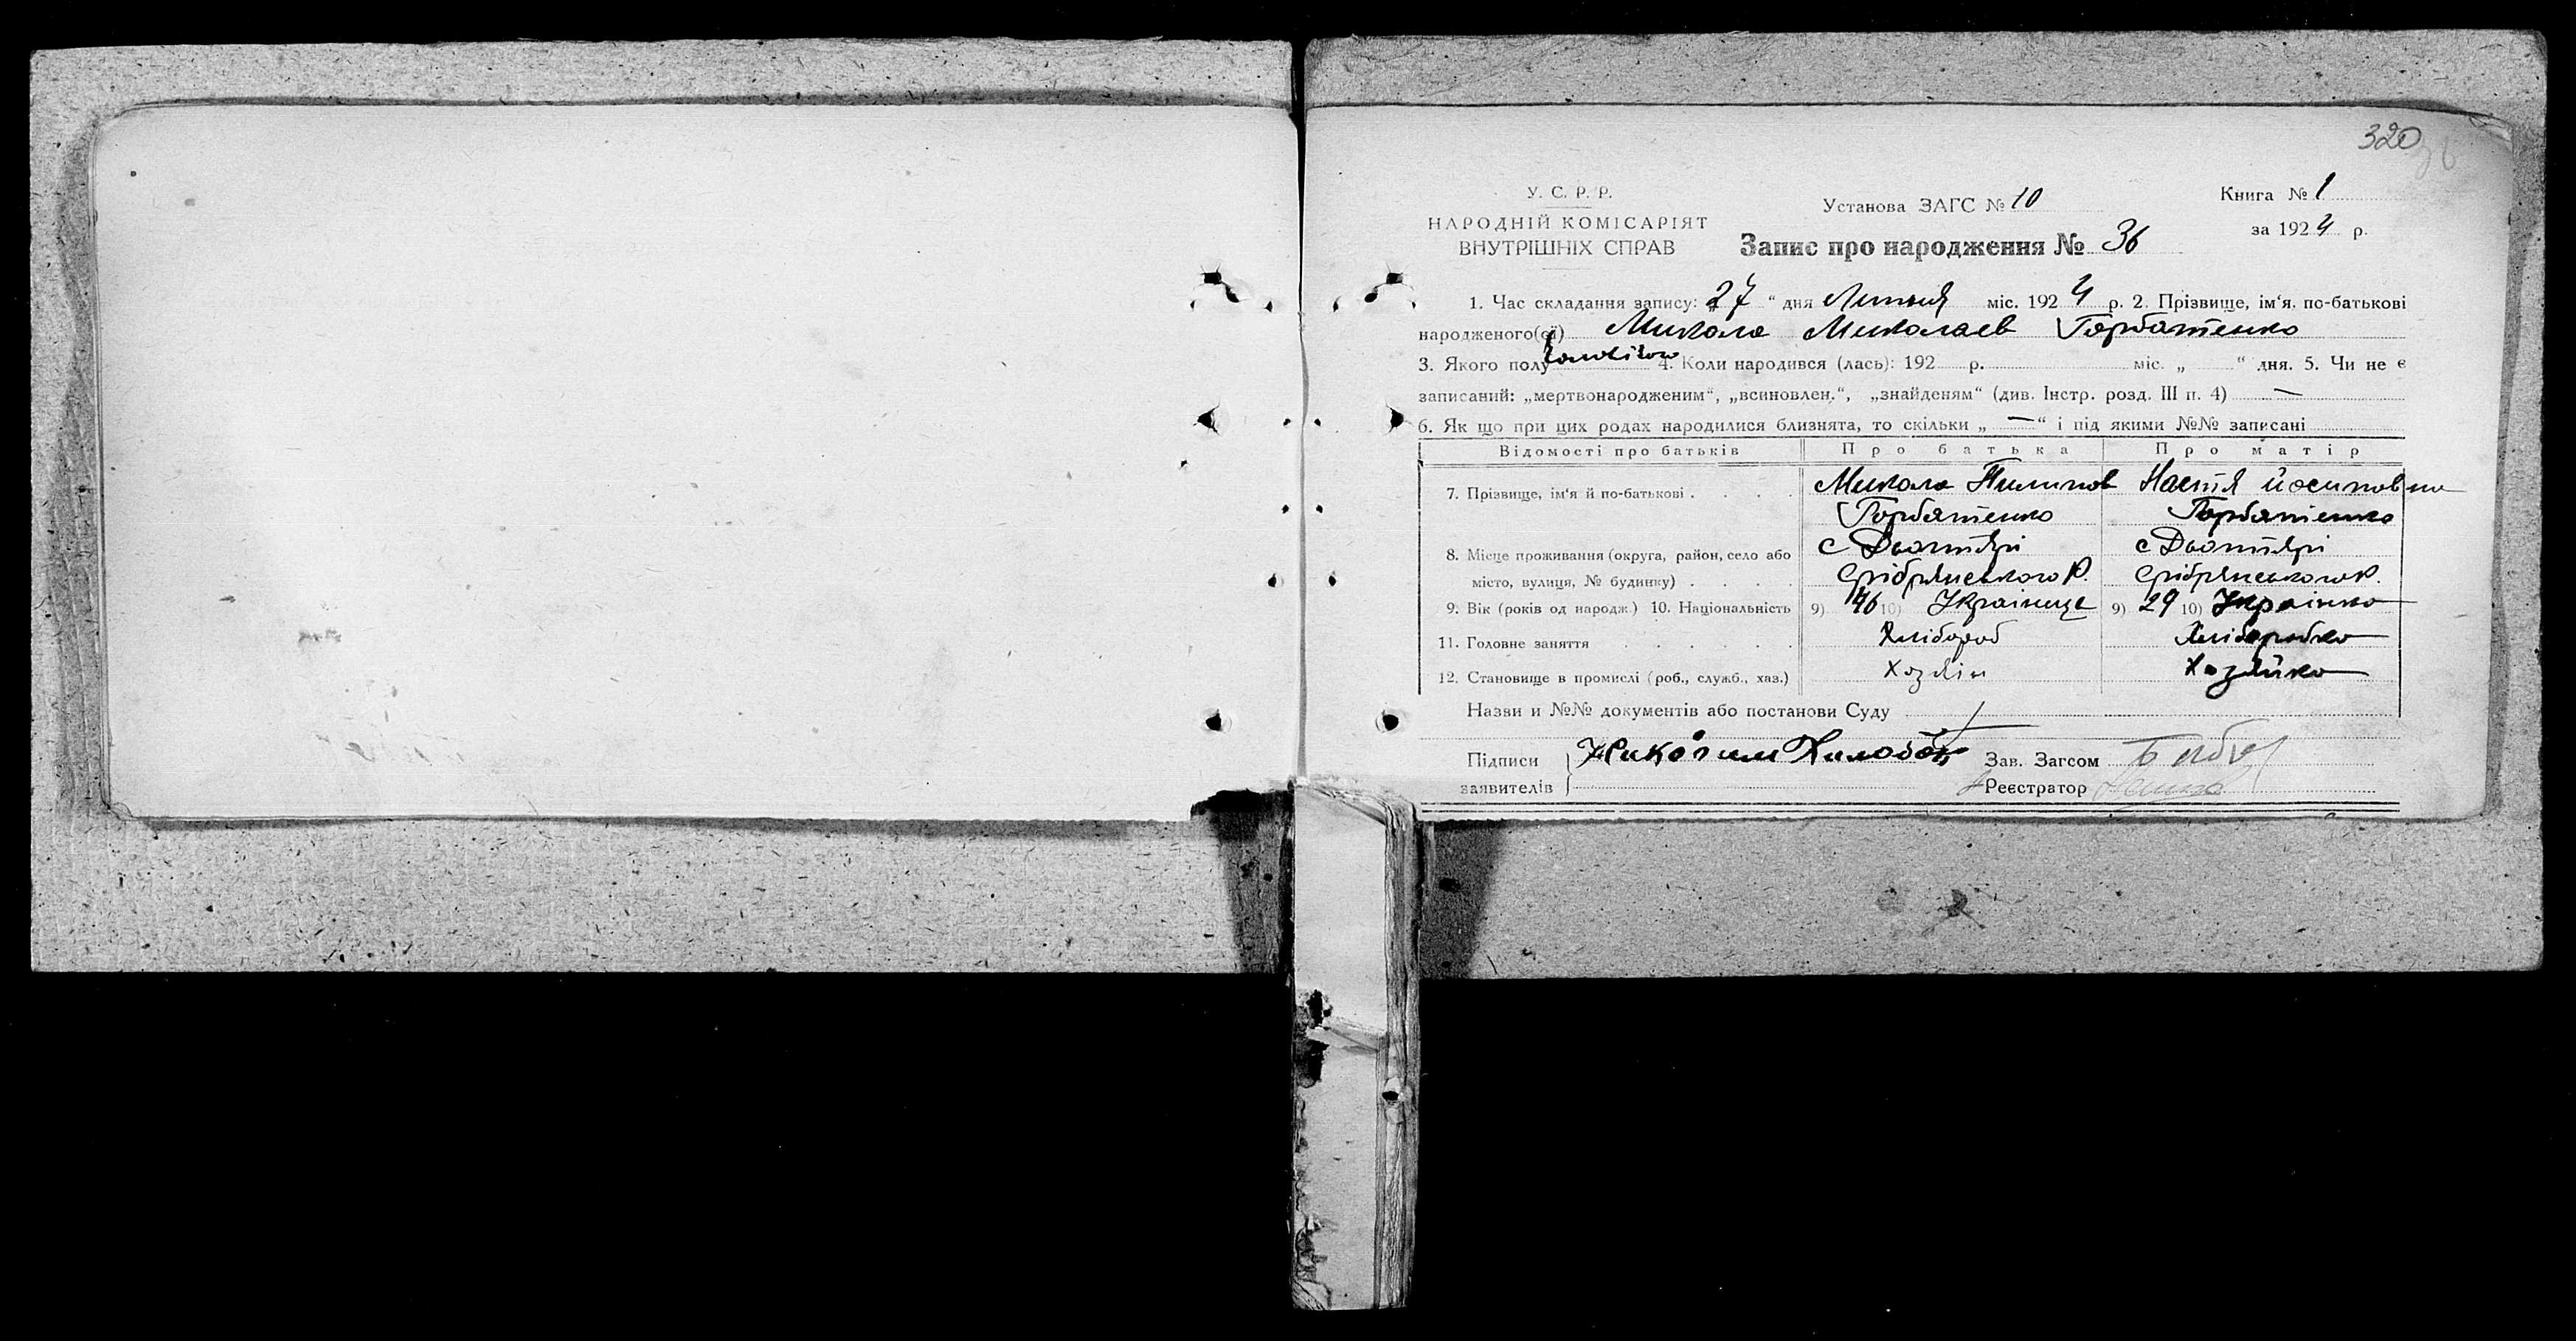 320
36
У. С. Р. Р.
НАРОДНІЙ КОМІСАРІЯТ
ВНУТРІШНІХ СПРАВ
Установа ЗАГС № 10
Книга № 1
за 1924 р.
Запис про народження № 36
1. Час складання запису: „27“ дня Липня міс. 1924 р. 2. Прізвище, ім‘я, по-батькові
народженого(ої) Микола Миколаев Горбатенко
3. Якого полу 4. Коли народився (лась): 192 р. міс. „ “ дня. 5. Чи не є
записаний: „мертвонародженим“, „всиновлен.“, „знайденям“ (див. Інстр. розд. III п. 4) —
6. Як що при цих родах народилися близнята, то скільки „ — “ і під якими №№ записані
Відомості про батьків Про батька Про матір
7. Прізвище, ім‘я й по-батькові . . . . Микола Пилипов Настя Йосиповна
Горбатенко Горбатенко
8. Місце проживання (округа, район, село або с Дігтярі с Дігтярі
місто, вулиця, № будинку) . . . . Срібрянського Р. Срібрянського Р.
9. Вік (років од народж.) 10. Національність 9) 46 10) Українець 9) 29 10) Українка
11. Головне заняття . . . . . . Хлібороб Хліборобка
12. Становище в промислі (роб., служб., хаз.) Хозяін Хозяйка
Назви и №№ документів або постанови Суду
Підписи
заявителів
Зав. Загсом
Реєстратор